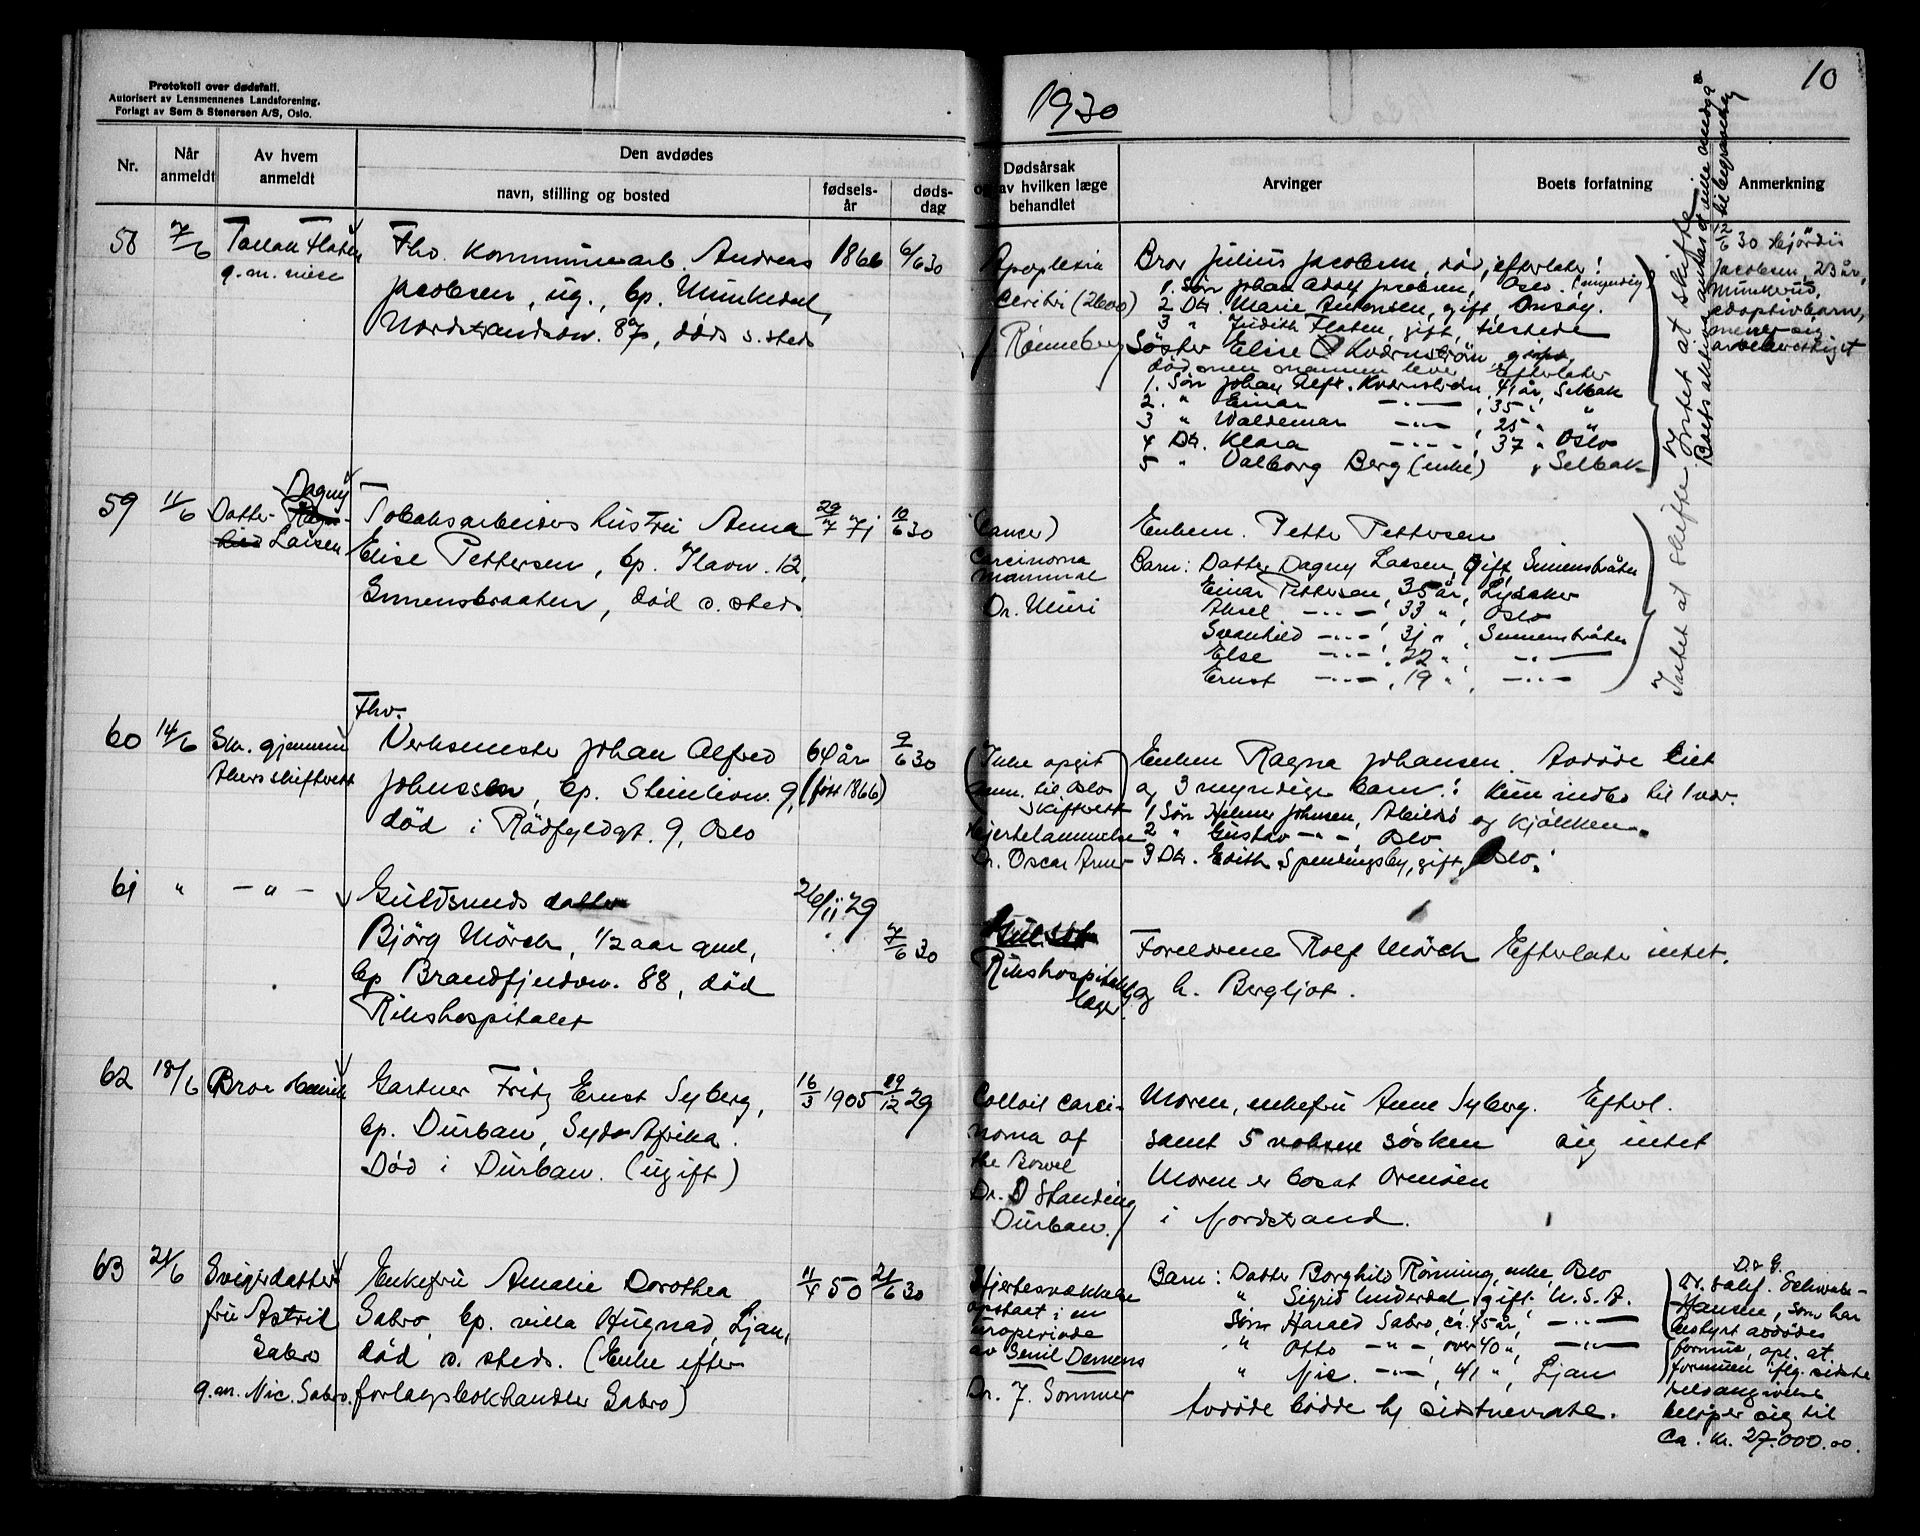 Protokoll over dødsfall.
Autorisert av Lensmennenes Landsforening.
Forlagt av Sem & Stenersen A/S, Oslo.
1930
10
Nr.
Når anmeldt
Av hvem anmeldt
Den avdødes
navn, stilling og bosted
fødsels-år
døds-dag
Dødsårsak
og av hvilken læge
behandlet
Arvinger
Boets forfatning
Anmerkning
58 7/6
Flaten
g.m. niese
Fhv. Kommunearb. Andreas
Jacobsen, ug., bp. Munkerud,
Nordstrandsvn. 87, død s. steds
1866 6/6 30
Apoplexia
Cerebri (2600)
Rönneberg
Bror Julius Jacobsen, död, efterlater:
1. Sön Johan Adolf Jacobsen, Oslo. (myndig)
2 Dtr. Marie Antonsen, gift, Onsöy.
3 " Judith Flaten, gift, tilstede
Söster Elise Kvernström, gift,
død men mannen lever. Efterlater
1. Sön Johan Alfr. Kvernström, 41 år, Selbak
2. " Einar —"— , 35 " "
3 " Valdemar —"— , 25 " "
4 Dtr. Klara —"— , 37 " Oslo
5 " Valborg Berg (enke) " Selbak
Intet at skifte
12/6 30 Hjördis
Jacobsen, 23 år,
Munkerud,
adoptivbarn,
mener sig
arveberettiget
59 11/6
Dagny
Datter
Larsen
Tobaksarbeiders hustru Anna
Elise Pettersen, bp. Ilavn. 12,
Simensbraaten, død s. steds
29/7 71 10/6 30
(Cancer)
Carcinoma
mammae
Dr. Muri
Enkem. Petter Pettersen
Barn: Datter Dagny Larsen, gift, Simensbråten
Einar Pettersen, 35 år, Lysaker
Aksel —"— , 33 ", Oslo
Svanhild —"— , 31 ", Simensbråten
Else —"— , 22 ", —"—
Ernst —"— , 19 ", —"—
Intet at skifte
60 14/6
Skr. gjennem
Akers skifterett
Fhv.
Verksmester Johan Alfred
Johnssen, bp. Slimliovn. 9,
død i Rådfyldgt. 9, Oslo
64 år
(født 1866)
9/6 30
(Ikke opgit
anm. til Oslo
Skifterett)
Hjertelammelse
Dr. Oscar
Enken Ragna Johansen. Avdøde eiet
og 3 myndige barn: Kun indbo til 1 vær.
1, Sön Helmer Johnsen, og kjökken.
2 " Gustav —"— , Oslo
3 Dtr. Edith Spendingsby, gift, Oslo.
61 " — " —
Guldsmeds datter
Björg Mörch, 1/2 aar gml,
bp Brandfjendvn. 88, død
Rikshospitalet
26/11 29
7/6 30
Rikshospitalets
læger
Foreldrene Rolf Mörch Efterlater intet.
og h. Bergljot.
62 18/6
Bror Henrik
Gartner Fritz Ernst Syberg,
bp. Durban, Syd Afrika.
Död i Durban. (ugift)
16/3 1905 29/12 29
Colloid Carci-
noma of
the Bowel
Dr. D Standing
Durban.
Moren, enkefru Anne Syberg. Efterl.
samt 5 voksne sösken sig intet
Moren er bosat Ormöen
i Nordstrand.
63 21/6
Svigerdatter
fru Astrid
Sabro
g.m. Nic. Sabro.
Enkefru Amalie Dorothea
Sabro, bp. villa Hugnad, Ljan,
död s. steds. (Enke efter
forlagsbokhandler Sabro)
11/4 50 21/6 30
Hjertesvækkelse
opstaat i en
uroperiode
av Senil Demens
Dr. J. Sommer
Barn: Datter Borghild Rönning, enke, Oslo
" Sigrid Underdal, gift. U.S.A.
Sön Harald Sabro, ca. 45 år, —"—
" Otto —"—, over 40 ", —"—
" Nic. —"—, 41 ", Ljan
Avdöde bodde hj sistnevnte.
Hansen, som har
bestyrt avdödes
formue, opl. at
formuen iflg. sidste
selvangivelse
belöper sig til
ca. kr. 27.000.00.